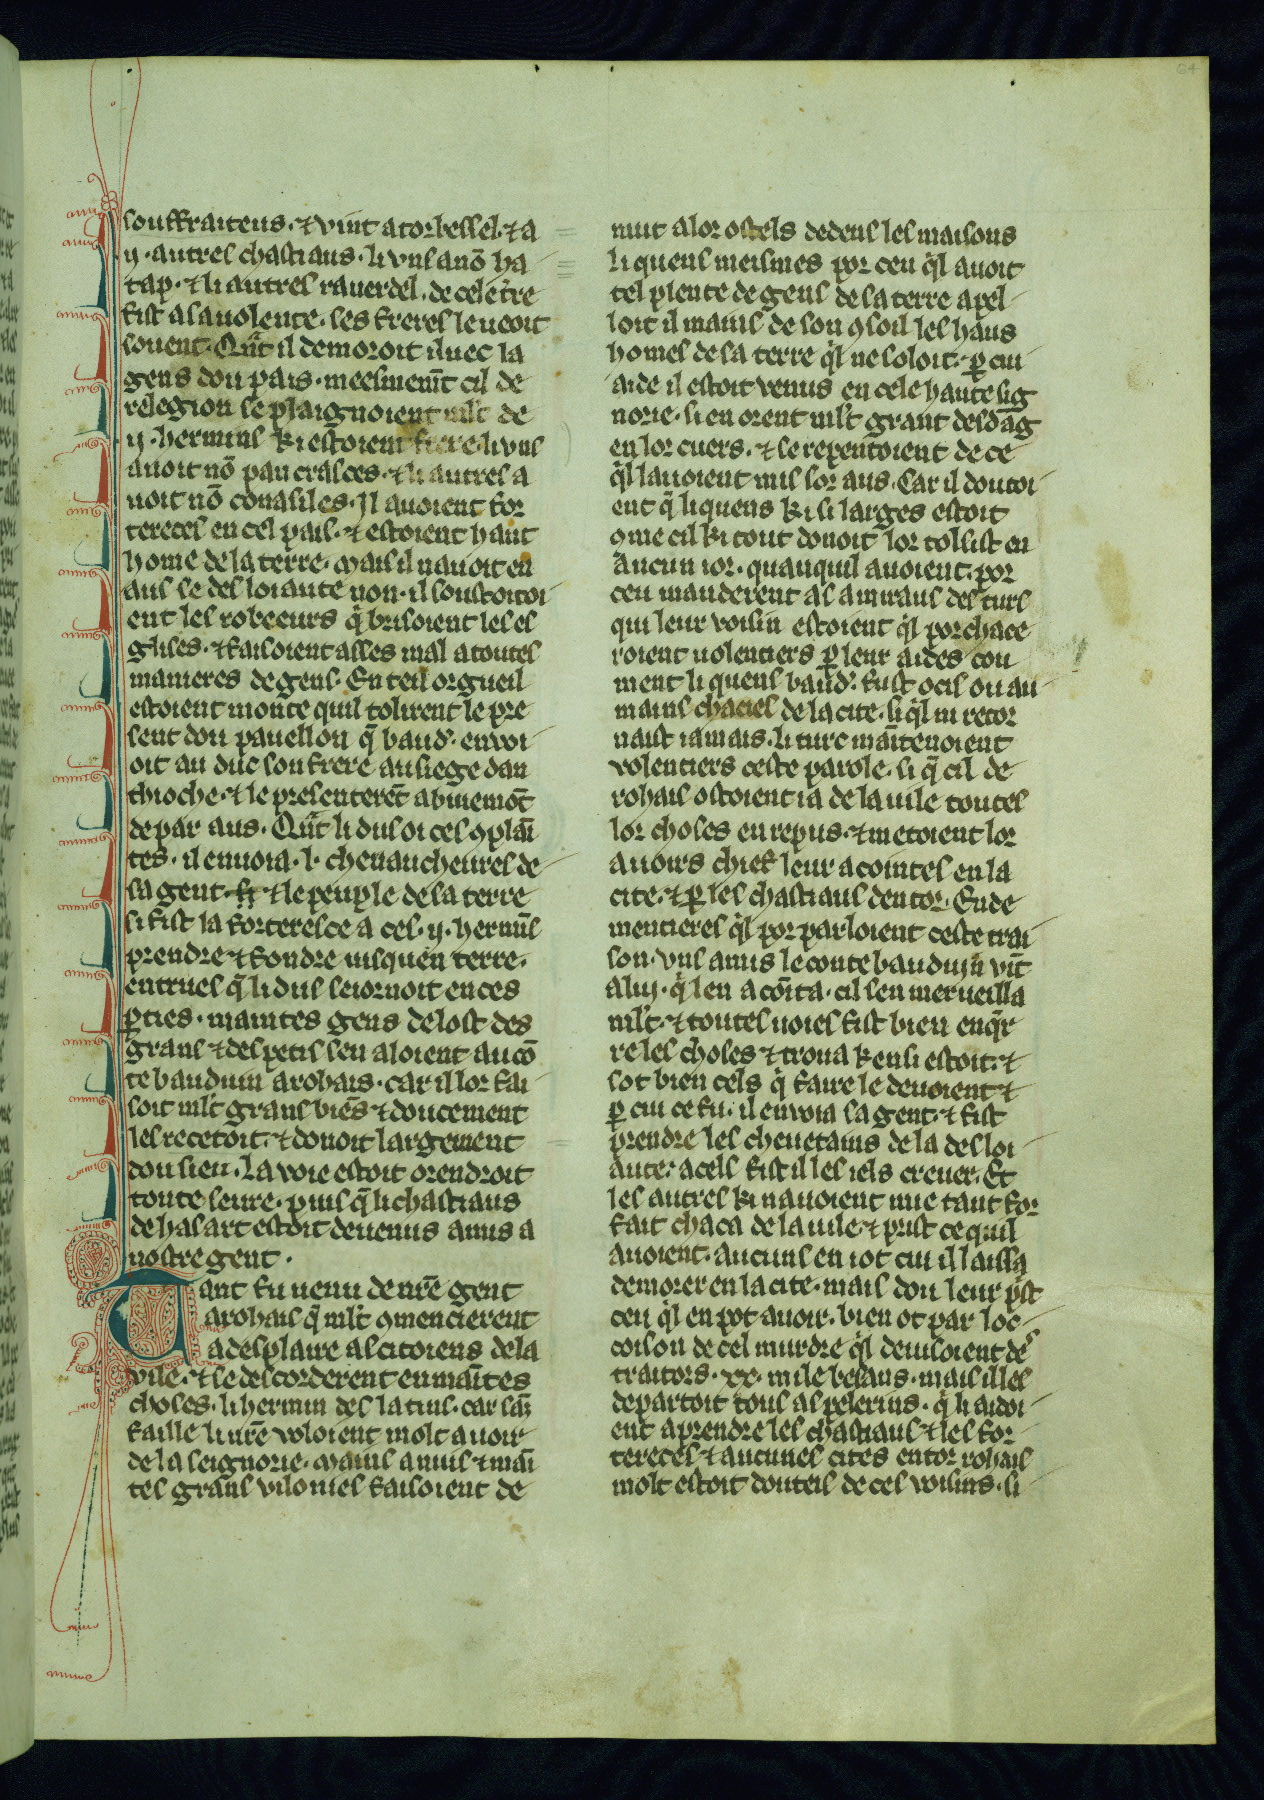 64
souffraiteus · ⁊ vint a torbessel · ⁊ a
ij · autres chastiaus · li vns a nō ha
tap · ⁊ li autres rauerdel · de cele t̄re
fist a sa uolente · ses freres le ueoit
souent · Qn̄t il demoroit iluec la
gens dou pais · meesmem̄t cil de
relegion se plaignoient ml̄t de
ij · hermins ki estoient frere · li vns
auoit nō pancrasces · ⁊ li autres a
uoit nō conasiles · Il auoient for
tereces en cel pais · ⁊ estoient haut
home de la terre · mais il nauoit en
aus se desloiaute non · il soustoitoi
ent les robeeurs q̄ brisoient les es
glises · ⁊ faisoient asses mal a toutes
manieres de gens · En teil orgueil
estoient monte quil tolirent le pre
sent dou paueillon q̄ baud᾽ · enuoi
oit au duc son frere au siege dan
thioche · ⁊ le presenterēt a buiemōt
de par aus · Qn̄t li dus oi ces 9plaī
tes · il enuoia · l · cheuaucheures de
sa gent ⁊ le peuple de la terre
si fist la forteresce a ces · ij · hermīs
prendre ⁊ fondre iusquen terre ·
entrues q̄ li dus seiornoit en ces
p̱ties · maintes gens de lost des
grans ⁊ des petis sen aloient au cō
te bauduin a rohais · car il lor fai
soit ml̄t grans biēs ⁊ doucement
les recetoit · ⁊ donoit largement
dou sien · La uoie estoit orendroit
toute seure · puis q̄ li chastiaus
de hasart estoit deuenus amis a
nostre gent ·
Tant fu uenu de nr̄e gent
a rohais q̄ ml̄t 9mencierent
a desplaire as citoiens de la
vile · ⁊ se descorderent en maītes
choses · li hermin des latins · car sās
faille li nr̄e voloient molt auoir
de la seignorie · mains anuis ⁊ maī
tes grans vilonies faisoient de
nuit a lor ostels dedens les maisons
li quens meismes por ceu q̄l auoit
tel plente de gens de sa terre apel
loit il mains de son 9soil les haus
homes de la terre q̄l ne soloit · p̱ cui
aide il estoit venus en cele haute sig
norie · si en orent ml̄t grant desdāg
en lor cuers · ⁊ se repentoient de ce
q̄l lauoient mis sor aus · Car il doutoi
ent q̄ li quens ki si larges estoit
9me cil ki tout donoit lor tolsist en
aucun ior · quanquil auoient · por
ceu manderent as amiraus des turs
qui leur voisin estoient q̄l porchace
roient uolentiers p̱ leur aides con
ment li quens baud᾽ · fust ocis ou au
mains chacies de la cite · si q̄l ni retor
naist iamais · li turc maītenoient
volentiers ceste parole · si q̄ cil de
rohais ostoient ia de la uile toutes
lor choses en repus · ⁊ metoient lor
auoirs chies leur acointes en la
cite · ⁊ p̱ les chastiaus dentor · Ende
mentieres q̄l porparloient ceste trai
son · vns amis le conte bauduin vīt
a lui · q̄ len acoīta · cil sen merueilla
ml̄t · ⁊ toutes uoies fist bien enq̄r
re les choses ⁊ troua kensi estoit · ⁊
sot bien cels q̄ faire le deuoient ⁊
p̱ cui ce fu · il enuoia sa gent · ⁊ fist
prendre les cheuetains de la desloi
aute · a cels fist il les iels creuer · Et
les autres ki nauoient mie tant for
fait chaca de la uile · ⁊ prist ce quil
auoient · aucuns en iot cui il laissa
demorer en la cite · mais dou leur pīst
ceu q̄l en pot auoir · bien ot par loc
coison de cel murdre q̄l deuisoient de
traitors · xx · mile besans · mais il les
departoit tous as pelerins · q̄ li aidoi
ent a prendre les chastiaus ⁊ les for
tereces ⁊ aucunes cites entor rohais
molt estoit douteis de ces voisins · si